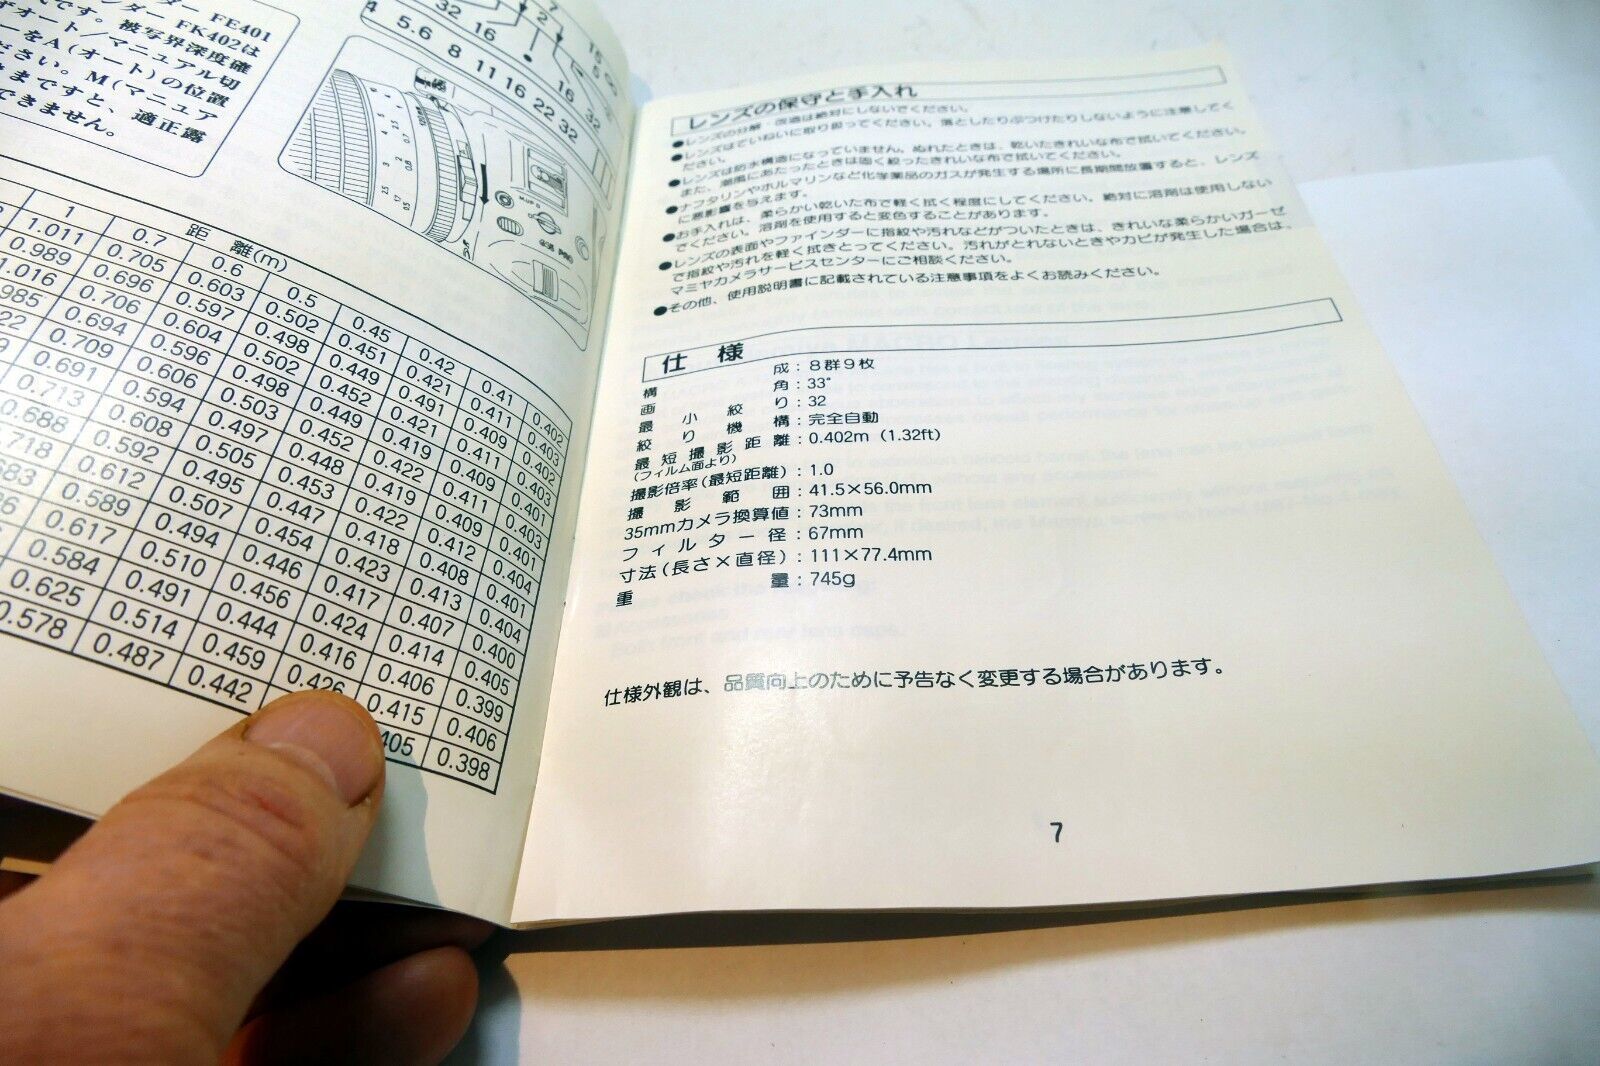 ー FE401
ンダー FK402は
です。被写界深度確
オート／マニュアル切
ーをA(オート)の位置
ださい。M(マニュア
ままですと、適正露
できません。
4 5.6 8 11 16 22 32
32 16 2 16 32
M.UP
645 PRO
距 離(m)
1 0.7 0.6 0.5 0.45 0.42 0.41 0.402
1.011 0.705 0.603 0.502 0.451 0.421 0.411 0.403
0.989 0.696 0.597 0.498 0.449 0.491 0.409 0.402
1.016 0.706 0.604 0.502 0.452 0.421 0.411 0.403
985 0.694 0.596 0.498 0.449 0.419 0.409 0.401
22 0.709 0.606 0.503 0.452 0.422 0.411 0.403
9 0.691 0.594 0.497 0.448 0.419 0.409 0.401
0.713 0.608 0.505 0.453 0.422 0.412 0.404
0.688 0.592 0.495 0.447 0.418 0.408 0.401
.718 0.612 0.507 0.454 0.423 0.413 0.404
683 0.589 0.495 0.446 0.417 0.407 0.400
26 0.617 0.510 0.456 0.424 0.414 0.405
0.584 0.491 0.444 0.416 0.406 0.399
0.625 0.514 0.459 0.426 0.415 0.406
0.578 0.487 0.442 405 0.398
レンズの保守と手入れ
●レンズの分解・改造は絶対にしないでください。
●レンズはていねいに取り扱ってください。落としたりぶつけたりしないように注意してく
ださい。
●レンズは防水構造になっていません。ぬれたときは、乾いたきれいな布で拭いてください。
また、潮風にあたったときは固く絞ったきれいな布で拭いてください。
●ナフタリンやホルマリンなど化学薬品のガスが発生する場所に長期間放置すると、レンズ
に悪影響を与えます。
●お手入れは、柔らかい乾いた布で軽く拭く程度にしてください。絶対に溶剤は使用しない
でください。溶剤を使用すると変色することがあります。
●レンズの表面やファインダーに指紋や汚れなどがついたときは、きれいな柔らかいガーゼ
で指紋や汚れを軽く拭きとってください。汚れがとれないときやカビが発生した場合は、
マミヤカメラサービスセンターにご相談ください。
●その他、使用説明書に記載されている注意事項をよくお読みください。
仕 様
構 成：8群9枚
画 角：33°
最 小 絞 り：32
絞 り 機 構：完全自動
最 短 撮 影 距 離：0.402m (1.32ft)
(フィルム面より)
撮影倍率(最短距離)：1.0
撮 影 範 囲：41.5×56.0mm
35mmカメラ換算値：73mm
フ ィ ル タ ー 径：67mm
寸法(長さ×直径)：111×77.4mm
重 量：745g
仕様外観は、品質向上のために予告なく変更する場合があります。
7